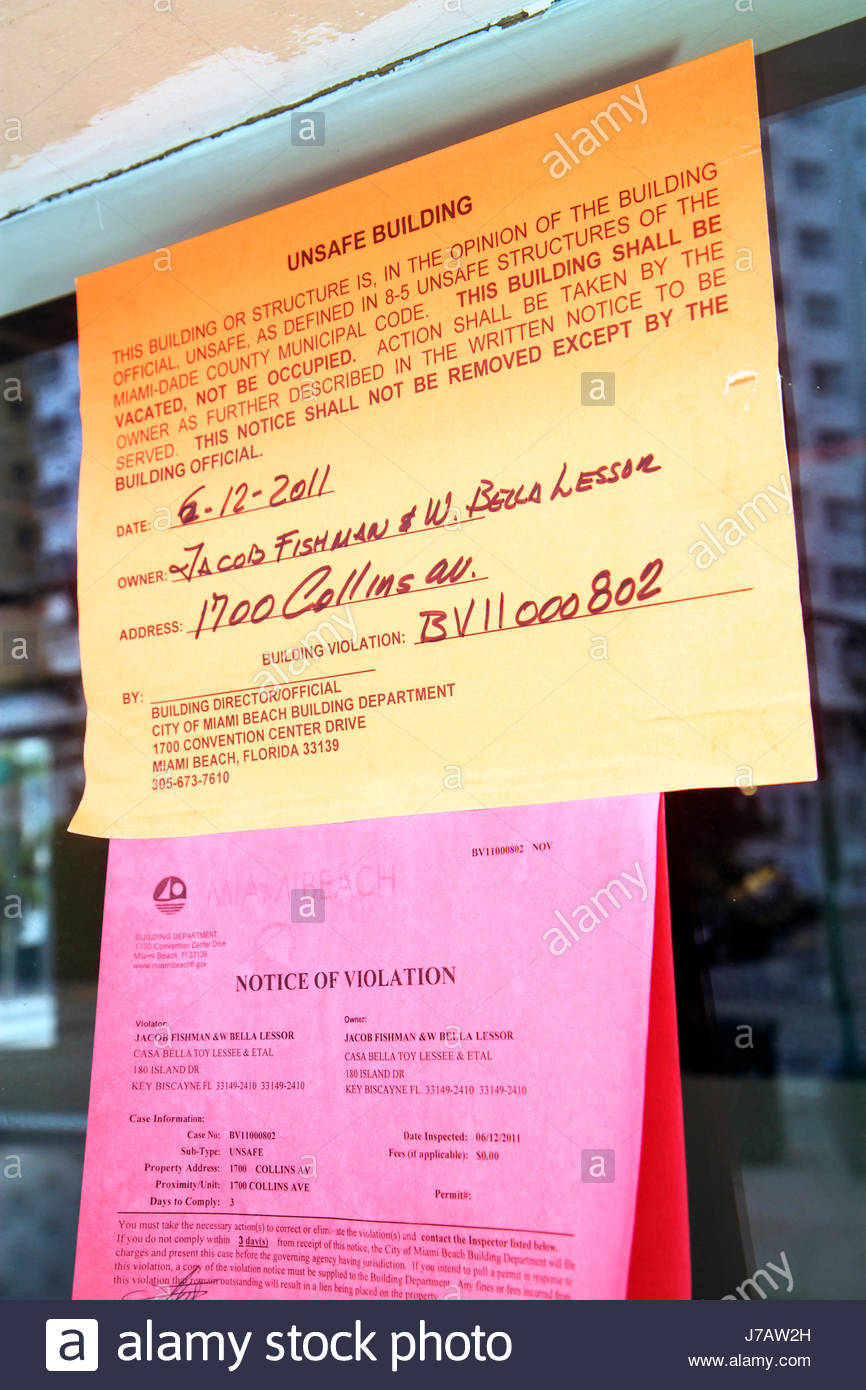 UNSAFE BUILDING
THIS BUILDING OR STRUCTURE IS, IN THE OPINION OF THE BUILDING
OFFICIAL, UNSAFE, AS DEFINED IN 8-5 UNSAFE STRUCTURES OF THE
MIAMI-DADE COUNTY MUNICIPAL CODE. THIS BUILDING SHALL BE
VACATED, NOT BE OCCUPIED. ACTION SHALL BE TAKEN BY THE
OWNER AS FURTHER DESCRIBED IN THE WRITTEN NOTICE TO BE
SERVED. THIS NOTICE SHALL NOT BE REMOVED EXCEPT BY THE
BUILDING OFFICIAL.
DATE: 6-12-2011
OWNER: JACOB FISHMAN & W. BELLA LESSOR
ADDRESS: 1700 Collins av.
BUILDING VIOLATION: BV11000802
BY:
BUILDING DIRECTOR/OFFICIAL
CITY OF MIAMI BEACH BUILDING DEPARTMENT
1700 CONVENTION CENTER DRIVE
MIAMI BEACH, FLORIDA 33139
305-673-7610
BV11000802 NOV
MIAMIBEACH
BUILDING DEPARTMENT
1700 Convention Center Drive
Miami Beach, Fl 33139
www.miamibeachfl.gov
NOTICE OF VIOLATION
Violator: Owner:
JACOB FISHMAN &W BELLA LESSOR JACOB FISHMAN &W BELLA LESSOR
CASA BELLA TOY LESSEE & ETAL CASA BELLA TOY LESSEE & ETAL
180 ISLAND DR 180 ISLAND DR
KEY BISCAYNE FL 33149-2410 33149-2410 KEY BISCAYNE FL 33149-2410 33149-2410
Case Information:
Case No: BV11000802 Date Inspected: 06/12/2011
Sub-Type: UNSAFE Fees (if applicable): $0.00
Property Address: 1700 COLLINS AV
Proximity/Unit: 1700 COLLINS AVE Permit#:
Days to Comply: 3
You must take the necessary action(s) to correct or eliminate the violation(s) and contact the Inspector listed below.
If you do not comply within 3 day(s) from receipt of this notice, the City of Miami Beach Building Department will file
charges and present this case before the governing agency having jurisdiction. If you intend to pull a permit in response to
this violation, a copy of the violation notice must be supplied to the Building Department. Any fines or fees incurred from
this violation that remain outstanding will result in a lien being placed on the property
alamy
alamy
alamy
alamy
alamy
alamy
a alamy stock photo
J7AW2H
www.alamy.com